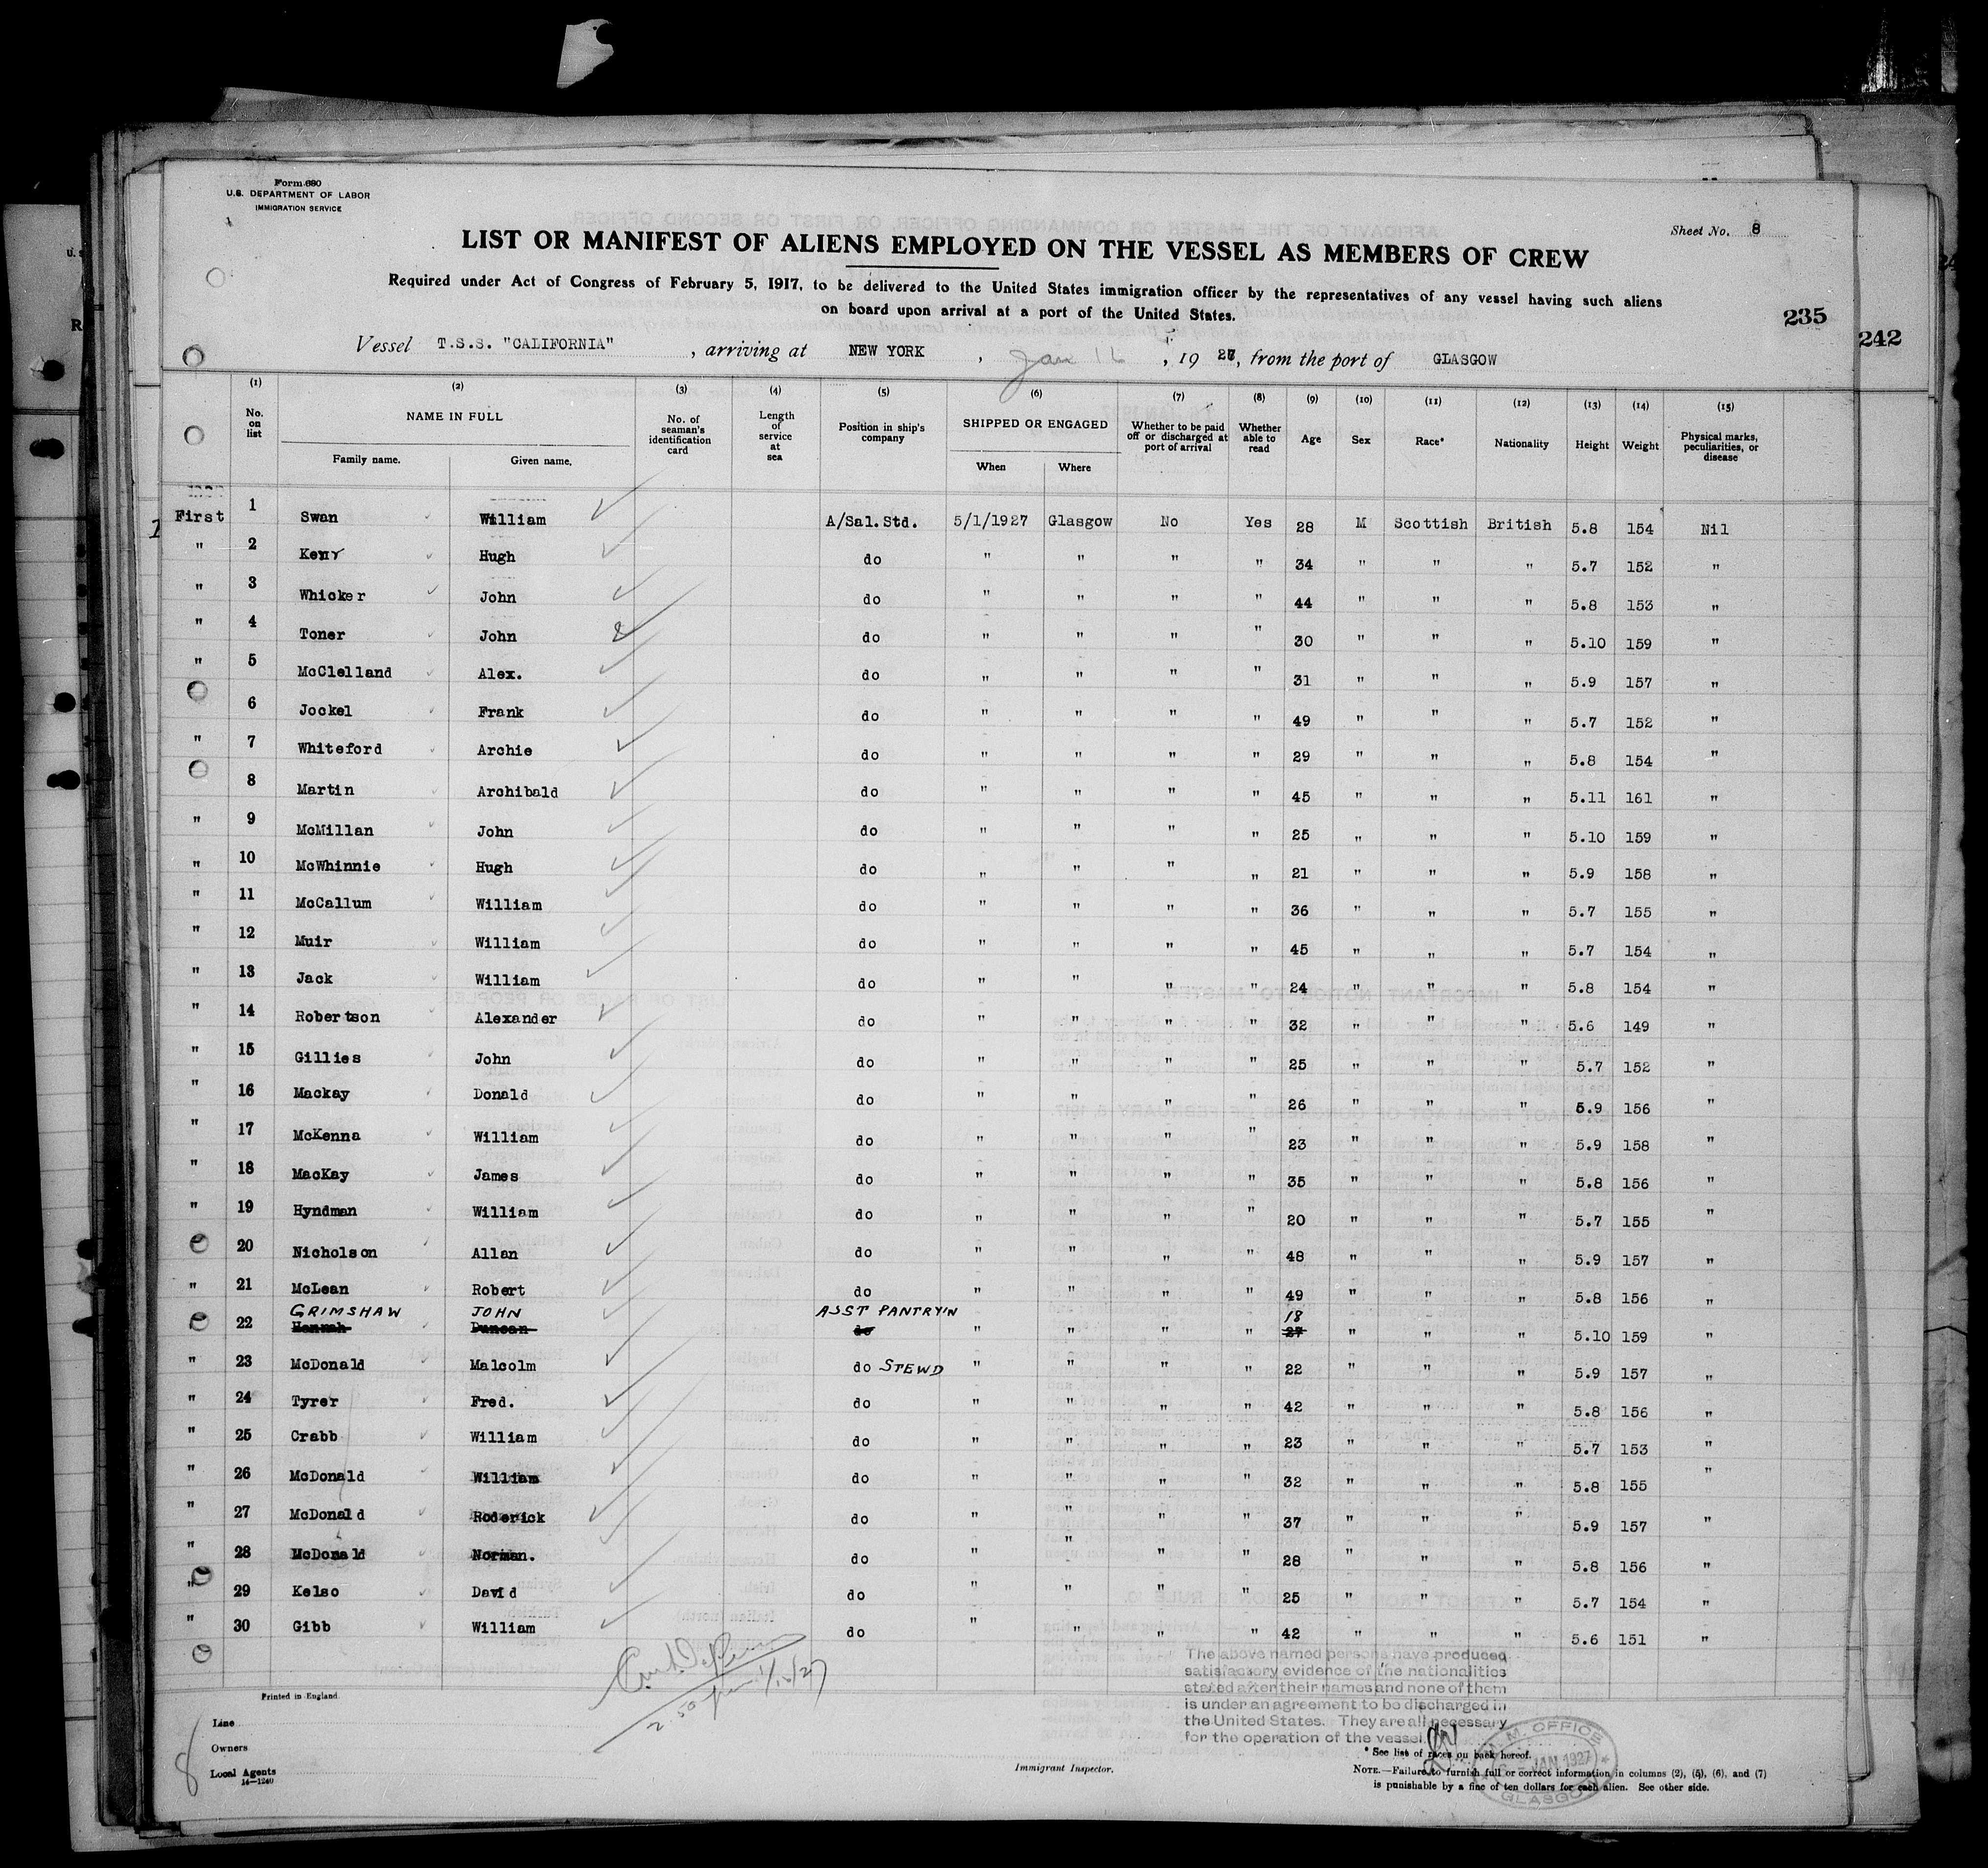 Form 680
U.S. DEPARTMENT OF LABOR
IMMIGRATION SERVICE
Sheet No. 8
LIST OR MANIFEST OF ALIENS EMPLOYED ON THE VESSEL AS MEMBERS OF CREW
Required under Act of Congress of February 5, 1917, to be delivered to the United States immigration officer by the representatives of any vessel having such aliens
on board upon arrival at a port of the United States.
235
242
Vessel T.S.S. "CALIFORNIA", arriving at NEW YORK, Jan 16, 1927, from the port of GLASGOW
(1) (2) (3) (4) (5) (6) (7) (8) (9) (10) (11) (12) (13) (14) (15)
No. on list NAME IN FULL No. of seaman's identification card Length of service at sea Position in ship's company SHIPPED OR ENGAGED Whether to be paid off or discharged at port of arrival Whether able to read Age Sex Race* Nationality Height Weight Physical marks, peculiarities, or disease
Family name. Given name. When Where
First 1 Swan William A/Sal.Std. 5/1/1927 Glasgow No Yes 28 M Scottish British 5.8 154 Nil
" 2 Kerr Hugh do " " " " 34 " " " 5.7 152 "
" 3 Whicker John do " " " " 44 " " " 5.8 153 "
" 4 Toner John do " " " " 30 " " " 5.10 159 "
" 5 McClelland Alex. do " " " " 31 " " " 5.9 157 "
6 Jockel Frank do " " " " 49 " " " 5.7 152 "
" 7 Whiteford Archie do " " " " 29 " " " 5.8 154 "
8 Martin Archibald do " " " " 45 " " " 5.11 161 "
" 9 McMillan John do " " " " 25 " " " 5.10 159 "
" 10 McWhinnie Hugh do " " " " 21 " " " 5.9 158 "
" 11 McCallum William do " " " " 36 " " " 5.7 155 "
" 12 Muir William do " " " " 45 " " " 5.7 154 "
" 13 Jack William do " " " " 24 " " " 5.8 154 "
" 14 Robertson Alexander do " " " " 32 " " " 5.6 149 "
" 15 Gillies John do " " " " 25 " " " 5.7 152 "
" 16 Mackay Donald do " " " " 26 " " " 5.9 156 "
" 17 McKenna William do " " " " 23 " " " 5.9 158 "
" 18 MacKay James do " " " " 35 " " " 5.8 156 "
" 19 Hyndman William do " " " " 20 " " " 5.7 155 "
20 Nicholson Allan do " " " " 48 " " " 5.9 157 "
" 21 McLean Robert do " " " " 49 " " " 5.8 156 "
GRIMSHAW JOHN ASST PANTRY'N 18
22 Hannah Duncan do " " " " 27 " " " 5.10 159 "
" 23 McDonald Malcolm do STEWD " " " " 22 " " " 5.9 157 "
" 24 Tyrer Fred. do " " " " 42 " " " 5.8 156 "
" 25 Crabb William do " " " " 23 " " " 5.7 153 "
" 26 McDonald William do " " " " 32 " " " 5.8 155 "
" 27 McDonald Roderick do " " " " 37 " " " 5.9 157 "
" 28 McDonald Norman. do " " " " 28 " " " 5.8 156 "
" 29 Kelso David do " " " " 25 " " " 5.7 154 "
" 30 Gibb William do " " " " 42 " " " 5.6 151 "
2.50 pm 1/16/27
The above named persons have produced
satisfactory evidence of the nationalities
stated after their names and none of them
is under an agreement to be discharged in
the United States. They are all necessary
for the operation of the vessel.
Printed in England.
Line
Owners
Local Agents
14—1240
8
Immigrant Inspector.
* See list of races on back hereof.
NOTE.—Failure to furnish full or correct information in columns (2), (5), (6), and (7)
is punishable by a fine of ten dollars for each alien. See other side.
M. M. OFFICE
JAN 1927
GLASGOW